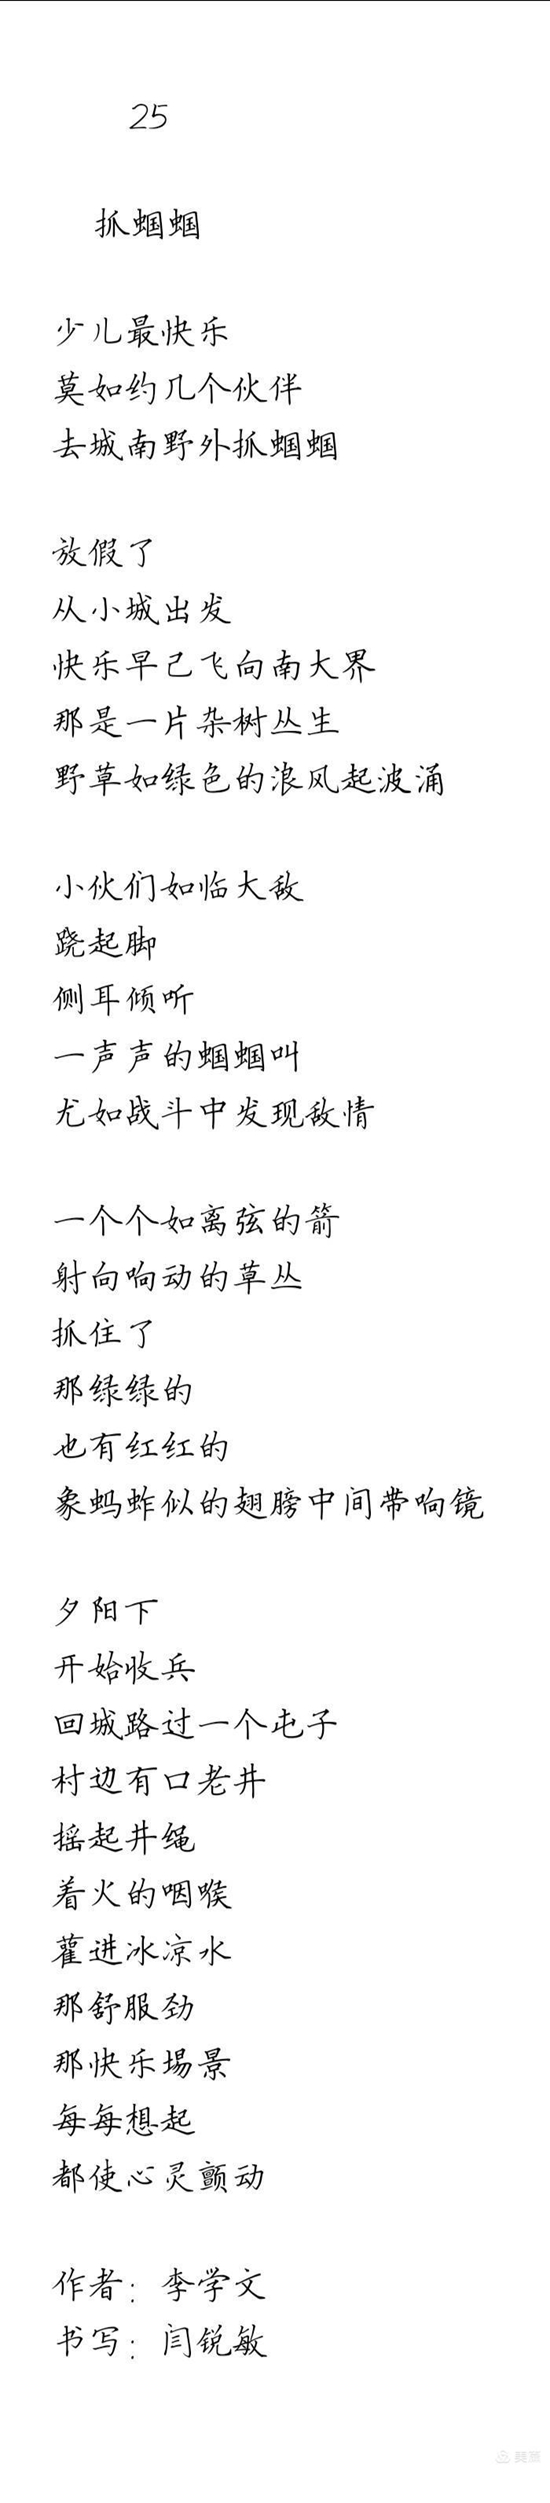 25
抓蝈蝈
少儿最快乐
莫如约几个伙伴
去城南野外抓蝈蝈
放假了
从小城出发
快乐早己飞向南大界
那是一片杂树丛生
野草如绿色的浪风起波涌
小伙们如临大敌
跷起脚
侧耳倾听
一声声的蝈蝈叫
尤如战斗中发现敌情
一个个如离弦的箭
射向响动的草丛
抓住了
那绿绿的
也有红红的
象蚂蚱似的翅膀中间带响镜
夕阳下
开始收兵
回城路过一个屯子
村边有口老井
摇起井绳
着火的咽喉
藿进冰凉水
那舒服劲
那快乐場景
每每想起
都使心灵颤动
作者：李学文
书写：闫锐敏
美篇